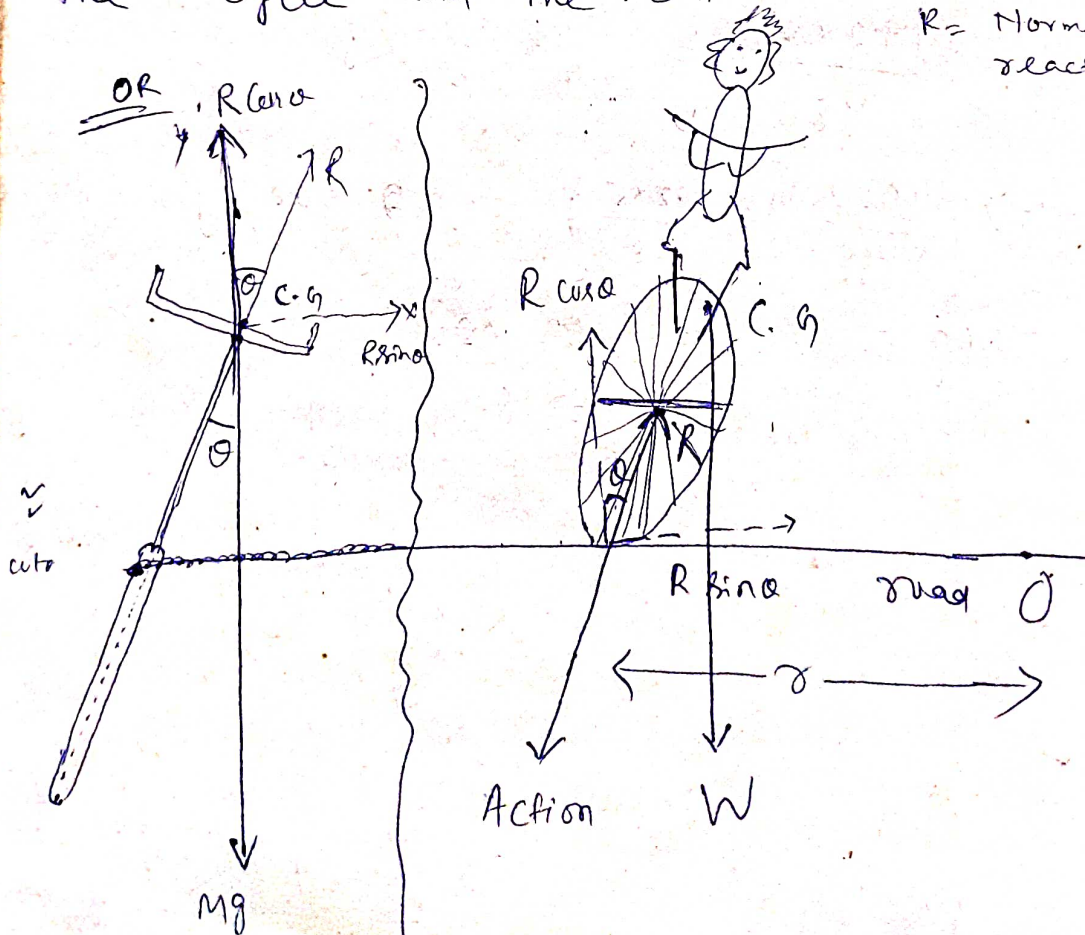 the cycle the
R= Norm
reac
OR
R Cosθ
y
R
θ
C.G
x
Rsinθ
θ
Mg
R cosθ
C.G
R
θ
R sinθ
road O
r
Action W